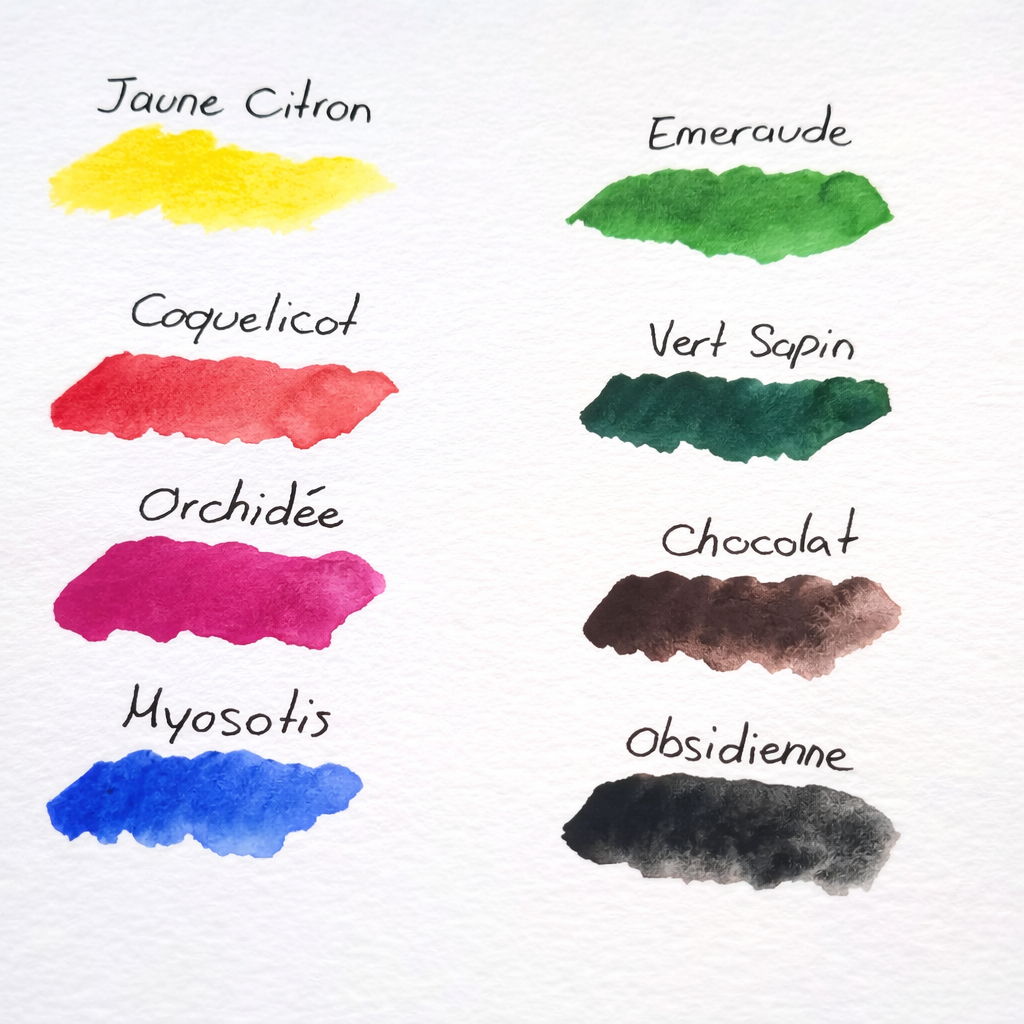 Jaune Citron
Coquelicot
Orchidée
Myosotis
Emeraude
Vert Sapin
Chocolat
Obsidienne